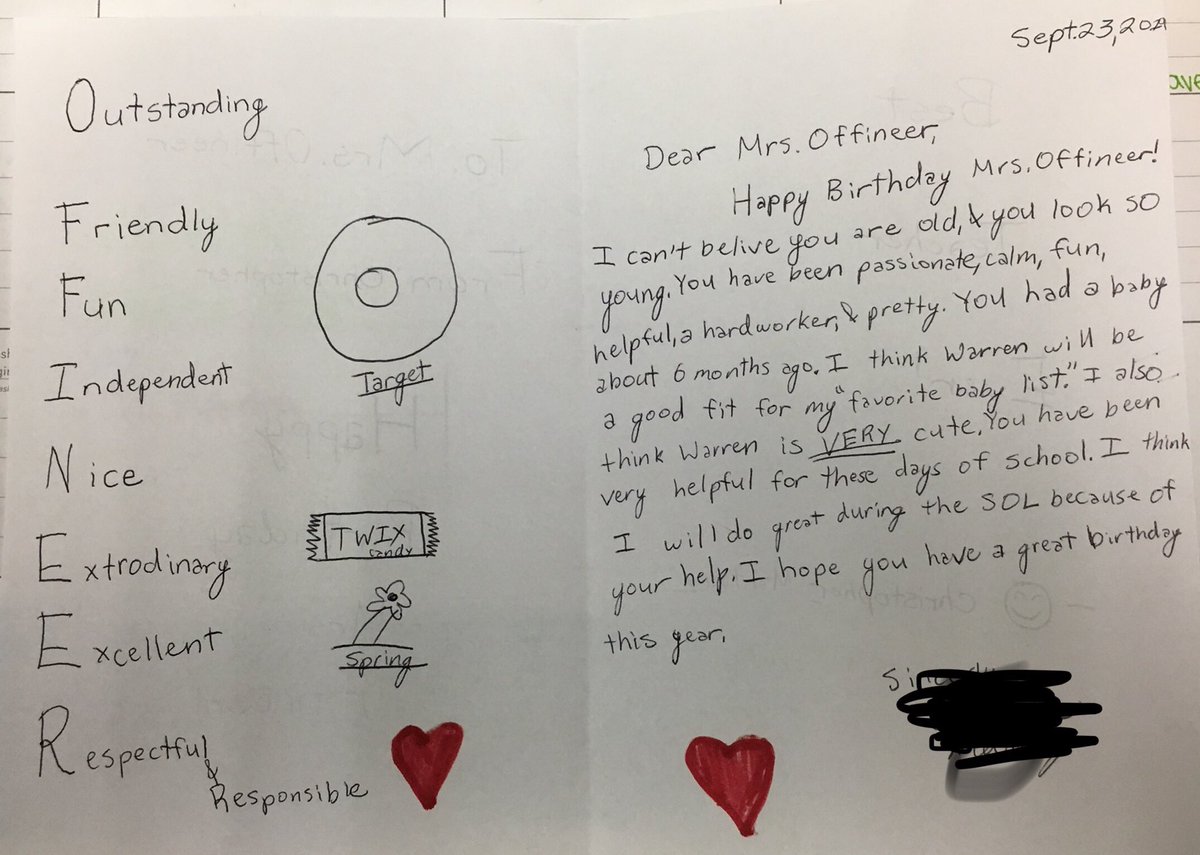 Outstanding
Friendly
Fun
Independent
Target
Nice
TWIX
candy
Extrodinary
Excellent
Spring
Respectful
&
Responsible
Sept.23,20
Dear Mrs. Offineer,
Happy Birthday Mrs. Offineer!
I can't belive you are old, & you look so
young. You have been passionate, calm, fun,
helpful, a hardworker, & pretty. You had a baby
about 6 months ago. I think Warren will be
a good fit for my "favorite baby list." I also
think Warren is VERY cute. You have been
very helpful for these days of school. I think
I will do great during the SOL because of
your help. I hope you have a great birthday
this year.